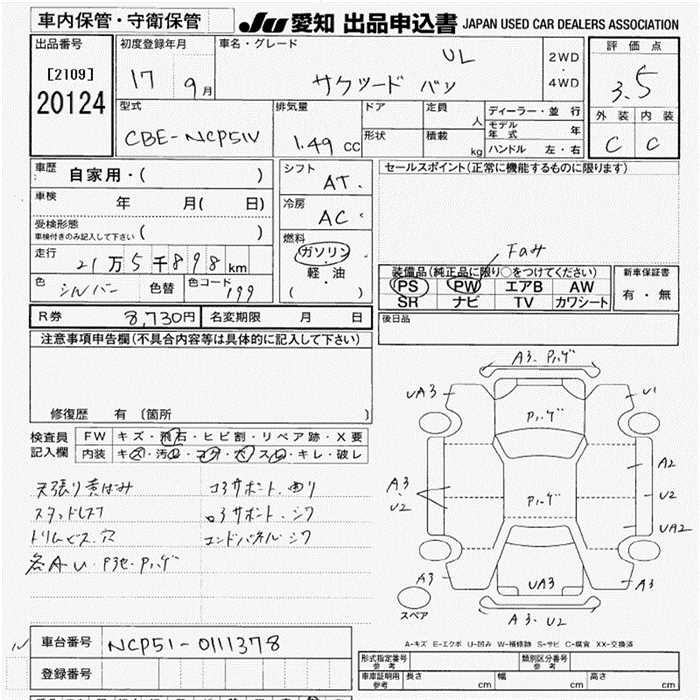 車内保管・守衛保管
JU 愛知 出品申込書 JAPAN USED CAR DEALERS ASSOCIATION
出品番号
[2109]
20124
初度登録年月
17 9月
車名・グレード
UL
サクシード バン
2WD
・
4WD
評価点
3.5
外装 内装
C C
型式
CBE-NCP51V
排気量
1.49 cc
ドア
形状
定員 人
積載 kg
ディーラー・並行
モデル年式 年
ハンドル 左・右
車歴: 自家用・( )
車検 年 月( 日)
受検形態
車検付きのみ記入して下さい ( )
走行
21万5千898km
色 シルバー 色替 色コード 199
シフト AT
冷房 AC
燃料
ガソリン
・
軽・油
( )
セールスポイント(正常に機能するものに限ります)
Fのみ
装備品(純正品に限り○をつけてください)
PS PW エアB AW
SR ナビ TV カワシート
新車保証書
有・無
R券 8,730円 名変期限 月 日
後日品
注意事項申告欄(不具合内容等は具体的に記入して下さい)
修復歴 有 〔箇所 〕
検査員記入欄
FW キズ・飛石・ヒビ割・リペア跡・X要
内装 キズ・汚レ・コゲ・穴・スレ・キレ・破レ
天張り黄ばみ
スタッドレス
トリムビス穴
各AU・P3地・Pハゲ
コアサポート曲り
コアサポート・シワ
エンドパネル・シワ
A3・Pハゲ
UA3
U1
Pハゲ
A3・U2
A2
U2
Pハゲ
UA2
A3
UA3
A3
スペア
A3・U2
A-キズ E-エクボ U-凹み W-補修跡 S-サビ C-腐食 XX-交換済
車台番号 NCP51-0111378
登録番号
形式指定番号 参考
類別区分番号 参考
車庫証明用 参考 長さ cm 幅 cm 高さ cm